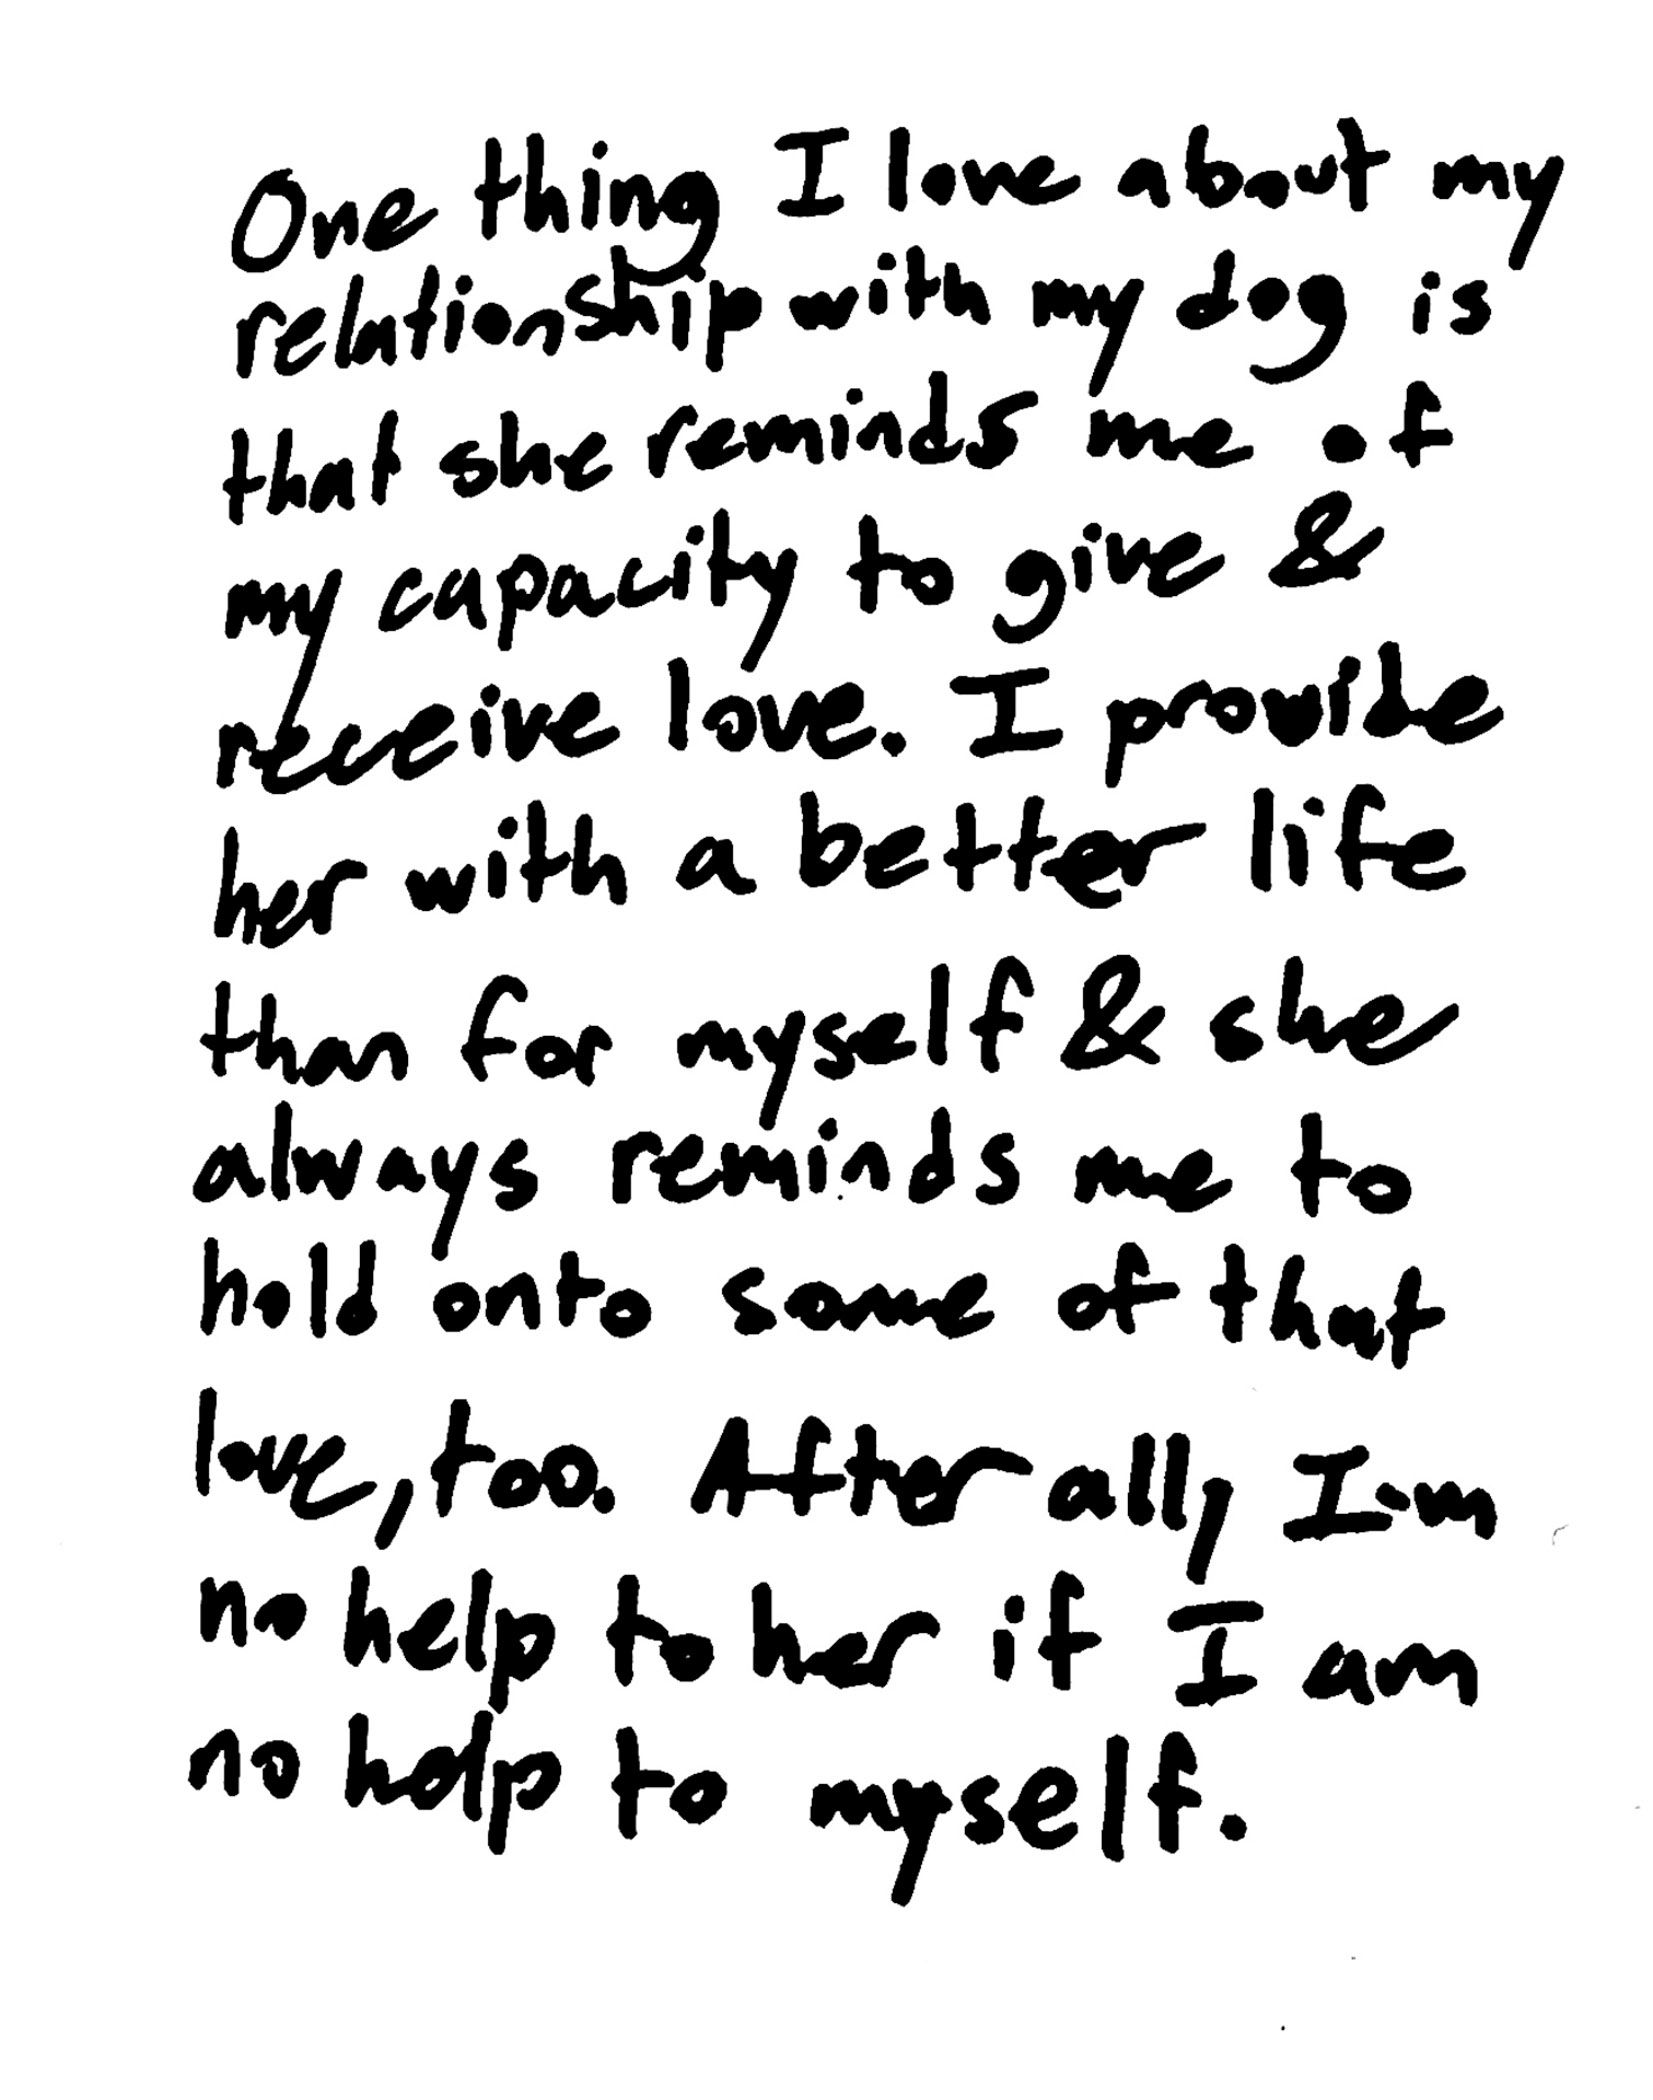 One thing I love about my
relationship with my dog is
that she reminds me of
my capacity to give &
receive love. I provide
her with a better life
than for myself & she
always reminds me to
hold onto some of that
love, too. After all, I'm
no help to her if I am
no help to myself.